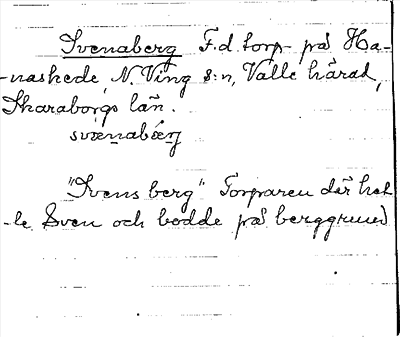 Svenaberg F.d. torp på Ha-
-naskede, N. Ving s:n, Valle härad,
Skaraborgs län.
svænabærj
"Svens berg" Torparen där het-
-te Sven och bodde på berggrund